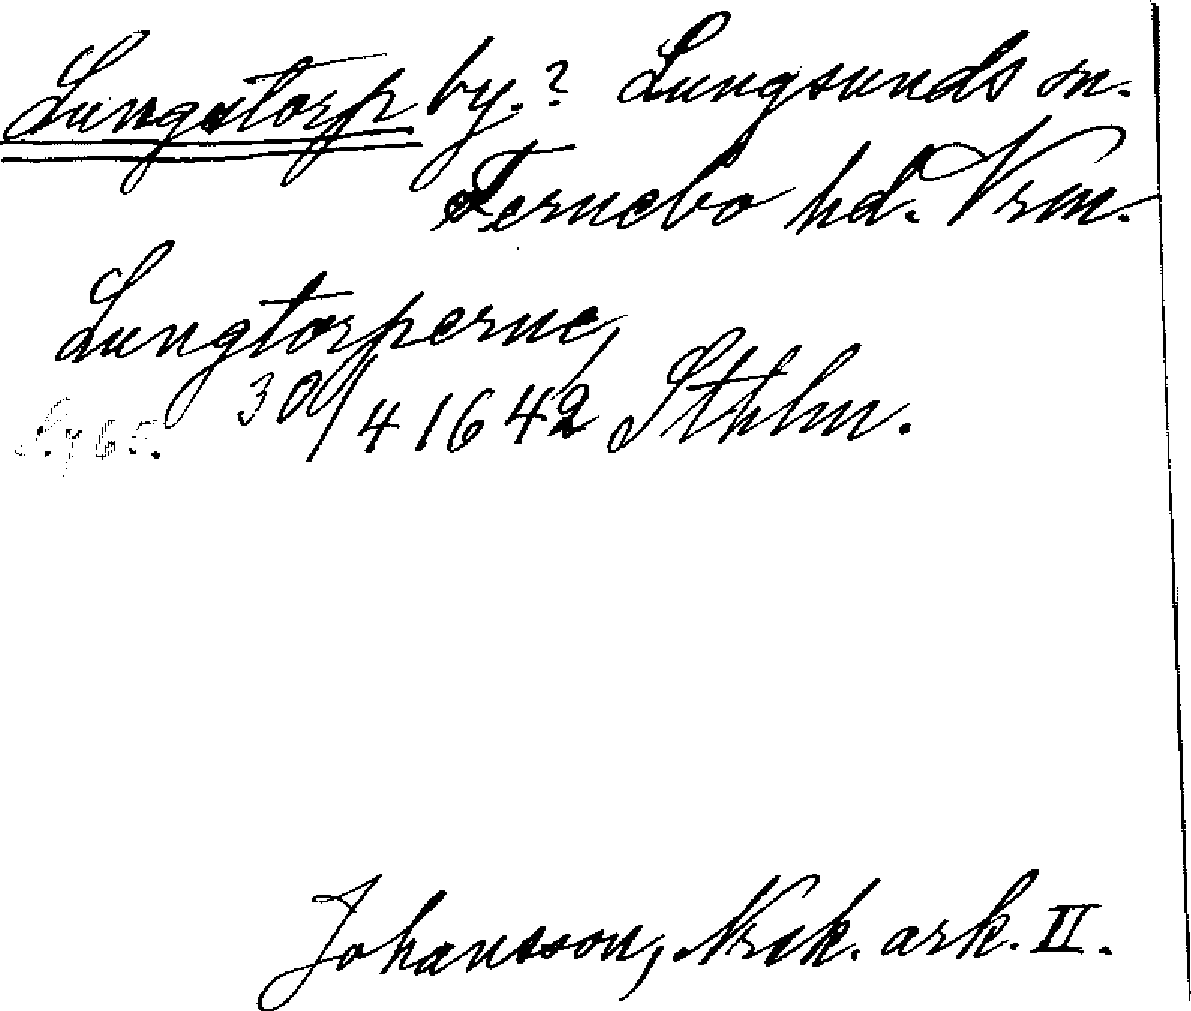 Lungstorp by.? Lungsunds sn.
Fernebo hd. Vrm.
Lungtorperne,
30/4 1642 Sthlm.
Johansson, Nrik. ark. II.